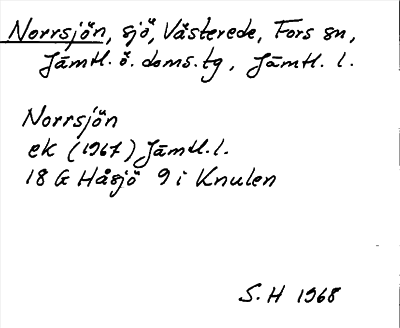 Norrsjön, sjö, Västerede, Fors sn,
Jämtl. ö. doms.tg, Jämtl. l.
Norrsjön
ek (1967) Jämtl. l.
18 G Håsjö 9 i Knulen
S. H 1968